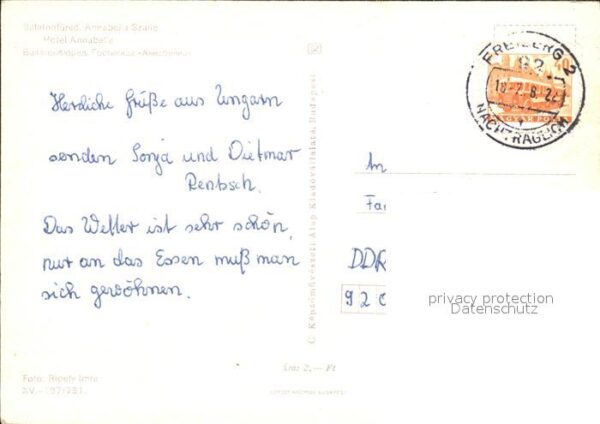 Balatonfüred. Annabella Szálló
Hotel Annabella
Herzliche Grüße aus Ungarn
senden Sonja und Dietmar
Rentsch.
Das Wetter ist sehr schön,
nur an das Essen muß man
sich gewöhnen.
Foto: Ripely Imre
C Képzőművészeti Alap Kiadóvállalata, Budapest
Ára: 2,— Ft
FREIBERG 2
92
NACHTRÄGLICH
40
MAGYAR POSTA
An
Fa
DDR
92
privacy protection
Datenschutz